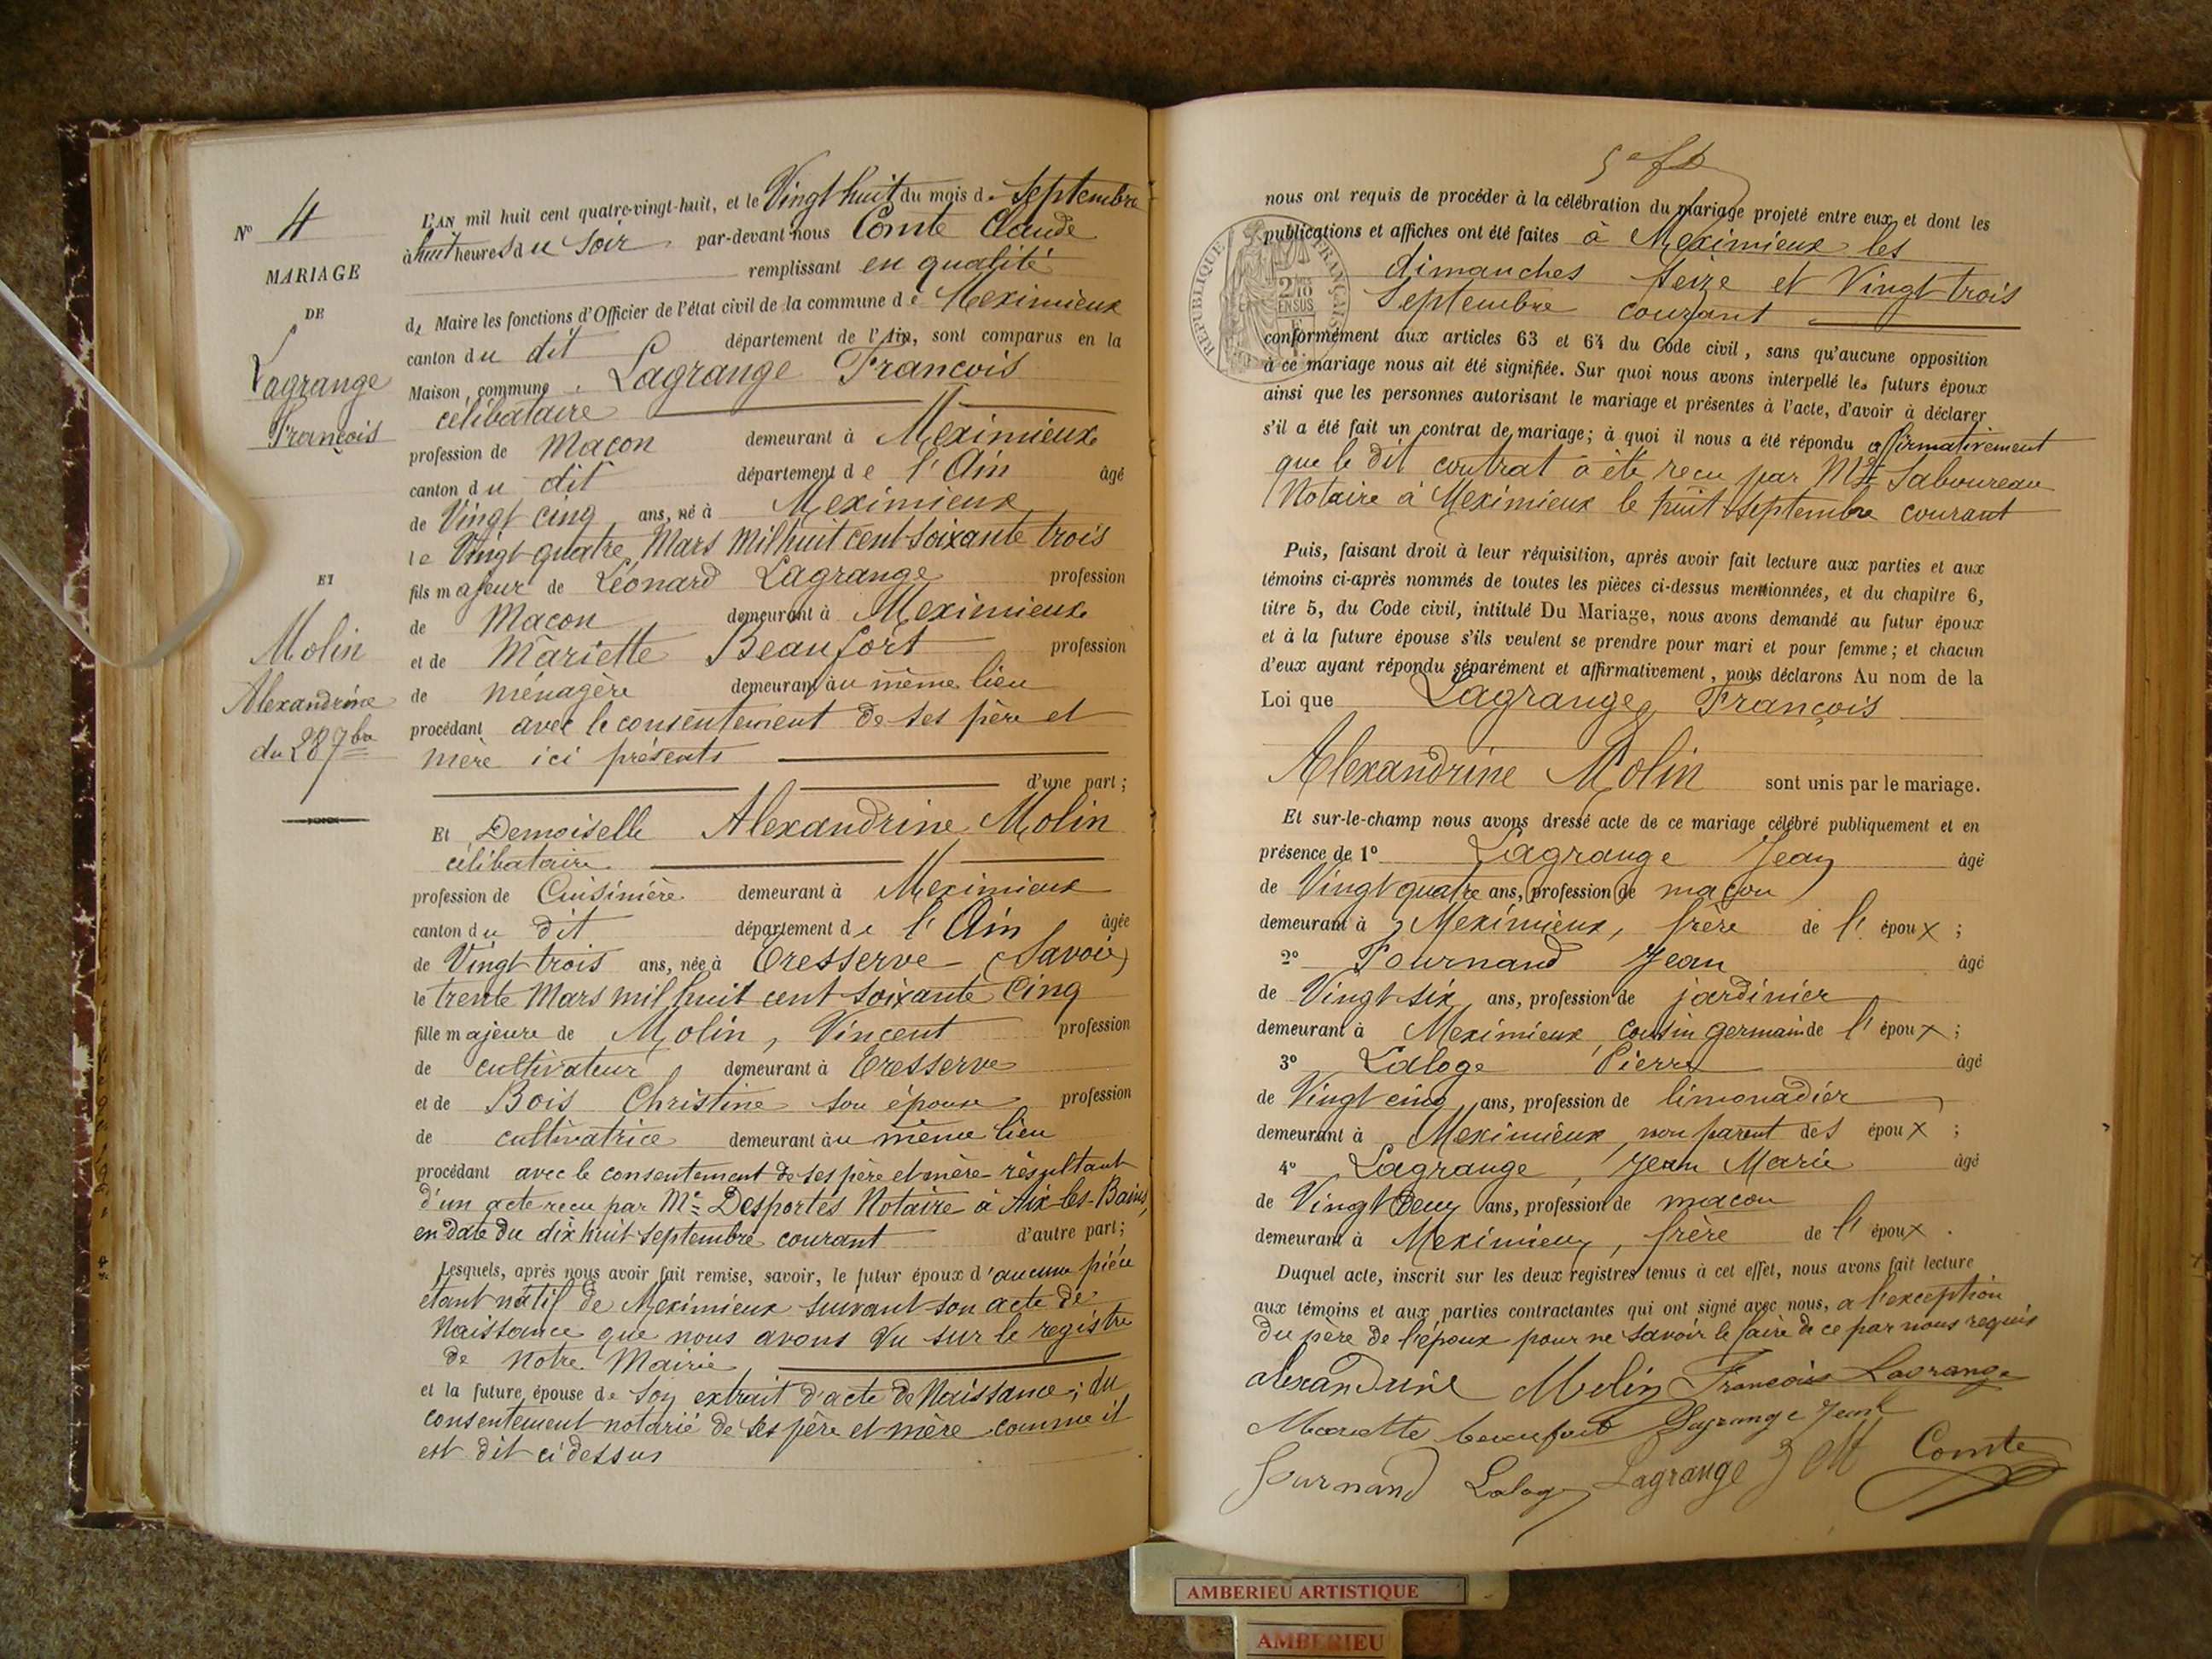 Nº 4
MARIAGE
DE
Lagrange
François
ET
Molin
Alexandrine
du 28 7bre
L'AN mil huit cent quatre-vingt-huit, et le Vingt huit du mois de Septembre
à huit heures du soir par-devant nous Comte Claude
remplissant en qualité
de Maire les fonctions d'Officier de l'état civil de la commune de Meximieux
canton du dit département de l'Ain, sont comparus en la
Maison commune Lagrange Francois
célibataire
profession de Macon demeurant à Meximieux
canton du dit département de l'Ain âgé
de Vingt cinq ans, né à Meximieux
le Vingt quatre Mars Mil huit cent soixante trois
fils majeur de Léonard Lagrange profession
de Macon demeurant à Meximieux
et de Mariette Beaufort profession
de ménagère demeurant au même lieu
procédant avec le consentement de ses père et
mère ici présents
d'une part;
Et Demoiselle Alexandrine Molin
célibataire
profession de Cuisinière demeurant à Meximieux
canton du dit département de l'Ain âgée
de Vingt trois ans, née à Tresserve (Savoie)
le trente Mars mil huit cent soixante Cinq
fille majeure de Molin, Vincent profession
de cultivateur demeurant à Tresserve
et de Bois Christine son épouse profession
de cultivatrice demeurant au même lieu
procédant avec le consentement de ses père et mère résultant
d'un acte recu par Me Desportes Notaire à Aix-les-Bains,
en date du dix huit septembre courant d'autre part;
Lesquels, après nous avoir fait remise, savoir, le futur époux d'aucune pièce
étant natif de Meximieux suivant son acte de
Naissance que nous avons Vu sur le registre
de notre Mairie
et la future épouse de son extrait d'acte de Naissance; du
consentement notarié de ses père et mère comme il
est dit ci dessus
nous ont requis de procéder à la célébration du mariage projeté entre eux et dont les
publications et affiches ont été faites à Meximieux les
dimanches seize et Vingt trois
Septembre courant
REPUBLIQUE FRANÇAISE
2/10
EN SUS
conformément aux articles 63 et 64 du Code civil, sans qu'aucune opposition
à ce mariage nous ait été signifiée. Sur quoi nous avons interpellé les futurs époux
ainsi que les personnes autorisant le mariage et présentes à l'acte, d'avoir à déclarer
s'il a été fait un contrat de mariage; à quoi il nous a été répondu affirmativement
que le dit contrat a été recu par Saboureau
Notaire à Meximieux le huit septembre courant
Puis, faisant droit à leur réquisition, après avoir fait lecture aux parties et aux
témoins ci-après nommés de toutes les pièces ci-dessus mentionnées, et du chapitre 6,
titre 5, du Code civil, intitulé Du Mariage, nous avons demandé au futur époux
et à la future épouse s'ils veulent se prendre pour mari et pour femme; et chacun
d'eux ayant répondu séparément et affirmativement, nous déclarons Au nom de la
Loi que Lagrange François
Alexandrine Molin sont unis par le mariage.
Et sur-le-champ nous avons dressé acte de ce mariage célébré publiquement et en
présence de 1º Lagrange Jean âgé
de Vingt quatre ans, profession de maçon
demeurant à Meximieux, frère de l'époux;
2º Fournand Jean âgé
de Vingt six ans, profession de jardinier
demeurant à Meximieux cousin germain de l'époux;
3º Laloge Pierre âgé
de Vingt cinq ans, profession de limonadier
demeurant à Meximieux, non parent des époux;
4º Lagrange, Jean Marie âgé
de Vingt Deux ans, profession de macon
demeurant à Meximieux, frère de l'époux.
Duquel acte, inscrit sur les deux registres tenus à cet effet, nous avons fait lecture
aux témoins et aux parties contractantes qui ont signé avec nous, a l'exception
du père de l'époux pour ne savoir le faire de ce par nous requis
alexandrine Molin François Lagrange
Mariette beaufort Lagrange Jean
fournand Laloge Lagrange J M Comte
AMBERIEU ARTISTIQUE
AMBERIEU